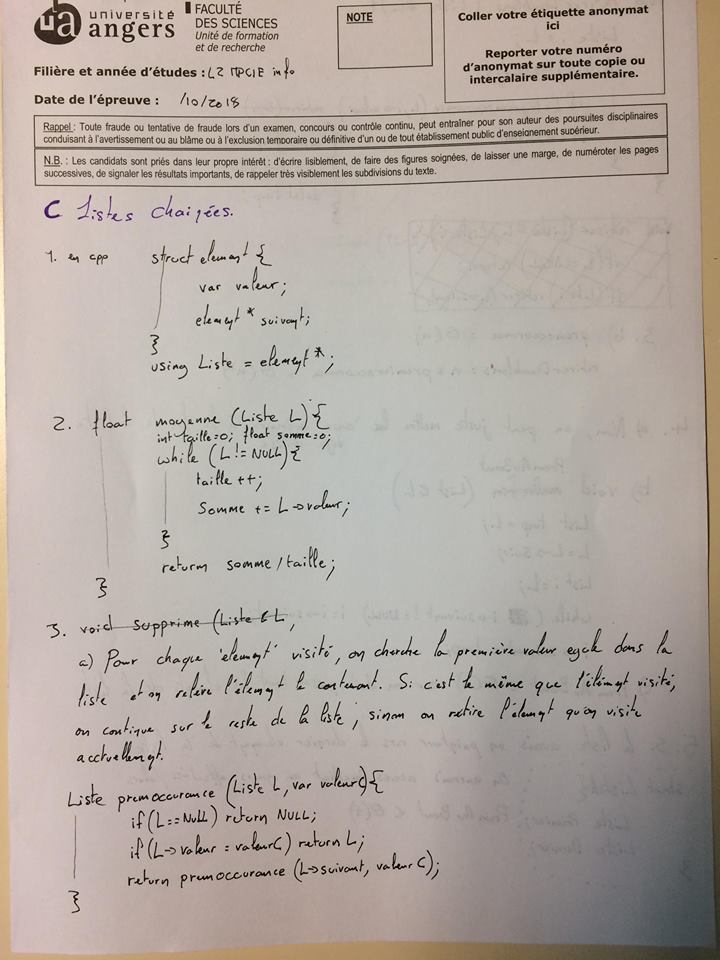 université
angers
FACULTÉ
DES SCIENCES
Unité de formation
et de recherche
NOTE
Coller votre étiquette anonymat
ici
Reporter votre numéro
d'anonymat sur toute copie ou
intercalaire supplémentaire.
Filière et année d'études : L2 MPCIE info
Date de l'épreuve : /10/2018
Rappel : Toute fraude ou tentative de fraude lors d'un examen, concours ou contrôle continu, peut entraîner pour son auteur des poursuites disciplinaires
conduisant à l'avertissement ou au blâme ou à l'exclusion temporaire ou définitive d'un ou de tout établissement public d'enseignement supérieur.
N.B. : Les candidats sont priés dans leur propre intérêt : d'écrire lisiblement, de faire des figures soignées, de laisser une marge, de numéroter les pages
successives, de signaler les résultats importants, de rappeler très visiblement les subdivisions du texte.
C Listes chainées.
1. en cpp struct element {
var valeur;
element * suivant;
}
using Liste = element *;
2. float moyenne (Liste L) {
int taille=0; float somme=0;
while (L != NULL) {
taille ++;
Somme += L->valeur;
}
return somme/taille;
}
3. void supprime (Liste & L,
a) Pour chaque 'element' visité, on cherche la première valeur egale dans la
liste et on relève l'élement le contenant. Si c'est le même que l'élément visité,
on continue sur le reste de la liste, sinon on retire l'élement qu'on visite
acctuellement.
Liste premoccurance (Liste L, var valeurC) {
if (L == NULL) return NULL;
if (L->valeur = valeurC) return L;
return premoccurance (L->suivant, valeurC);
}